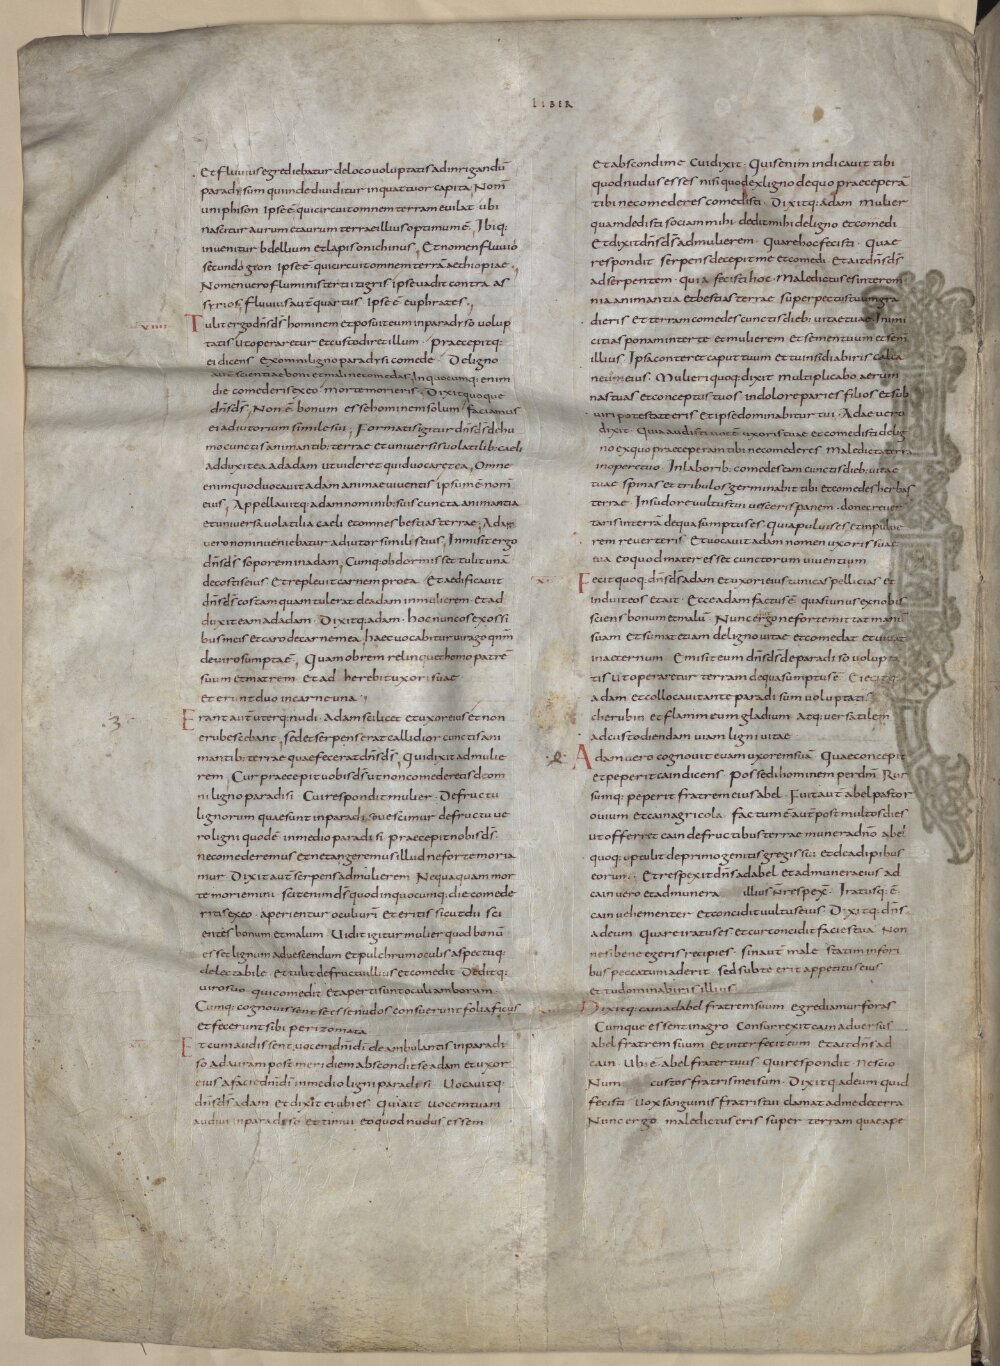 LIBER
Et fluvius egrediebatur de loco voluptatis ad inrigandū
paradisum qui inde dividitur in quattuor capita Nom̄
uni phison Ipse ē qui circuit omnem terram euilat ubi
nascitur aurum et aurum terrae illius optimum ē, Ibiq:
invenitur bdellium et lapis onichinus, Et nomen fluvio
secundo geon Ipse ē qui circuit omnem terrā aethiopiae,
Nomen vero fluminis tertii tigris ipse vadit contra as
syrios, fluvius aut̄ quartus ipse ē euphrates,
xiiii Tulit ergo dn̄s ds̄ hominem et posuit eum in paradyso volup
tatis Ut operaretur et custodiret illum. praecepitq:
ei dicens Ex omni ligno paradysi comede De ligno
aut̄ scientiae boni et mali ne comedas, In quocumq: enim
die comederis ex eo morte morieris. Dixit quoque
dn̄s ds̄, Non ē bonum esse hominem solum, faciamus
ei adiutorium simile sui, Formatis igitur dn̄s ds̄ de hu
mo cunctis animantib: terrae et universis volatilib: caeli
adduxit ea ad adam ut videret quid vocaret ea, Omne
enim quod vocavit adam animae viventis ipsum ē nom̄
eius, Appellavitq: adam nominib: suis cuncta animantia
et universa volatilia caeli et omnes bestias terrae, Adae
vero non inveniebatur adiutor similis eius, Inmisit ergo
dn̄s ds̄ soporem in adam, Cumq: obdormisset tulit unā
de costis eius Et replevit carnem pro ea. Et aedificavit
dn̄s ds̄ costam quam tulerat de adam in mulierem Et ad
duxit eam ad adam. Dixitq: adam. hoc nunc os ex ossi
bus meis et caro de carne mea, haec vocabitur virago qn̄m
de viro sumpta ē, Quam obrem relinquet homo patrē
suum et matrem Et adherebit uxori suae
et erunt duo in carne una
3 Erant aut̄ uterq: nudi. Adam scilicet et uxor eius et non
erubescebant, sed et serpens erat callidior cunctis ani
mantib: terrae quae fecerat dn̄s ds̄, Qui dixit ad mulie
rem, Cur praecepit vobis ds̄ ut non comederetis de om
ni ligno paradisi Cui respondit mulier. De fructu
lignorum quae sunt in paradiso vescimur de fructu ve
ro ligni quod ē in medio paradisi praecepit nobis ds̄.
ne comederemus et ne tangeremus illud ne forte moria
mur. Dixit aut̄ serpens ad mulierem Nequaquam mor
te moriemini scit enim ds̄ quod in quocumq: die comede
ritis ex eo. aperientur oculi vr̄i Et eritis sicut dii sci
entes bonum et malum Vidit igitur mulier quod bonū
esset lignum ad vescendum et pulchrum oculis aspectuq:
delectabile. Et tulit de fructu illius et comedit Deditq:
viro suo qui comedit Et aperti sunt oculi amborum.
Cumq: cognovissent se esse nudos consuerunt folia ficus
et fecerunt sibi perizomata
Et cum audissent vocem dn̄i dī deambulantis in paradi
so ad auram post meridiem abscondit se adam et uxor
eius a facie dn̄i dī in medio ligni paradisi Vocavitq:
dn̄s ds̄ adam Et dixit ei ubi es Qui ait vocem tuam
audivi in paradiso et timui eo quod nudus essem
Et abscondi me Cui dixit. Quis enim indicavit tibi
quod nudus esses nisi quod ex ligno de quo praeceperā
tibi ne comederes comedisti. Dixitq: adam Mulier
quam dedisti sociam mihi. dedit mihi de ligno et comedi
Et dixit dn̄s ds̄ ad mulierem. Quare hoc fecisti. Quae
respondit serpens decepit me et comedi. Et ait dn̄s ds̄
ad serpentem quia fecisti hoc. Maledictus es inter om
nia animantia et bestias terrae super pectus tuum gra
dieris Et terram comedes cunctis dieb: vitae tuae Inimi
citias ponam inter te et mulierem et semen tuum et sem̄
illius Ipsa conteret caput tuum et tu insidiaberis calca
neum eius. Mulieri quoq: dixit Multiplicabo aerum
nas tuas et conceptus tuos in dolore paries filios Et sub
viri potestate eris et ipse dominabitur tui. Adae vero
dixit. Quia audisti vocē uxoris tuae et comedisti de lig
no ex quo praeceperam tibi ne comederes Maledicta terra
in opere tuo. In laborib: comedes eam cunctis dieb: vitae
tuae spinas et tribulos germinabit tibi et comedes herbas
terrae. In sudore vultus tui vesceris panem. donec rever
taris in terrā de qua sumptus es Quia pulvis es et in pulve
rem reverteris Et vocavit adam nomen uxoris suae
eva eo quod mater esset cunctorum viventium
Fecit quoq: dn̄s ds̄ adam et uxori eius tunicas pellicias et
induit eos et ait. Ecce adam factus ē quasi unus ex nobis
sciens bonum et malū Nunc ergo ne forte mittat manū
suam et sumat etiam de ligno vitae et comedat et vivat
in aeternum Emisit eum dn̄s ds̄ de paradiso volupta
tis Ut operaretur terram de qua sumptus ē Eiecitq:
adam et collocavit ante paradisum voluptatis
cherubin et flammeum gladium atq: versatilem
ad custodiendam viam ligni vitae
Adam vero cognovit evam uxorem suā Quae concepit
et peperit cain dicens possedi hominem per dm̄ Rur
sumq: peperit fratrem eius abel. Fuit aut̄ abel pastor
ovium et cain agricola. factum ē aut̄ post multos dies
ut offerret cain de fructibus terrae munera dn̄o abel
quoq: optulit de primogenitis gregis sui et de adipibus
eorum. Et respexit dn̄s ad abel et ad munera eius ad
cain vero et ad munera illius n̄ respex̄. Iratusq: ē
cain vehementer Et concidit vultus eius. Dixitq: dn̄s
ad eum Quare iratus es et cur concidit facies tua Non
ne si bene egeris recipies. sin aut̄ male statim in fori
bus peccatum aderit. sed sub te erit appetitus eius
et tu dominaberis illius
Dixitq: cain ad abel fratrem suum egrediamur foras
Cumque essent in agro Consurrexit cain adversus
abel fratrem suum Et interfecit eum et ait dn̄s ad
cain Ubi ē abel frater tuus Qui respondit nescio
Num custos fratris mei sum. Dixitq: ad eum quid
fecisti vox sanguinis fratris tui clamat ad me de terra
Nunc ergo maledictus eris super terram quae ape